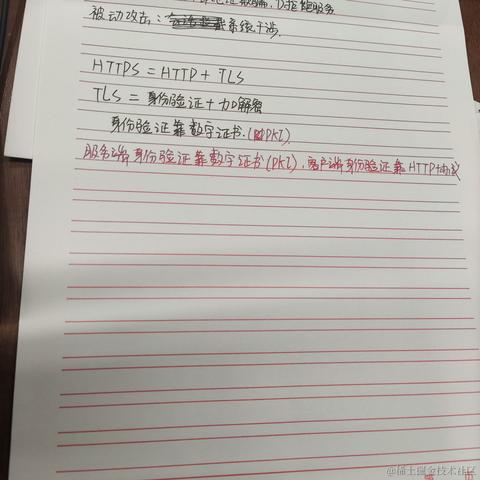 拒绝服务
被动攻击：系统干涉.
HTTPS = HTTP + TLS
TLS = 身份验证 + 加解密
身份验证靠数字证书.(PKI)
服务端身份验证靠数字证书(PKI)，客户端身份验证靠HTTP协议
@稀土掘金技术社区
第 页